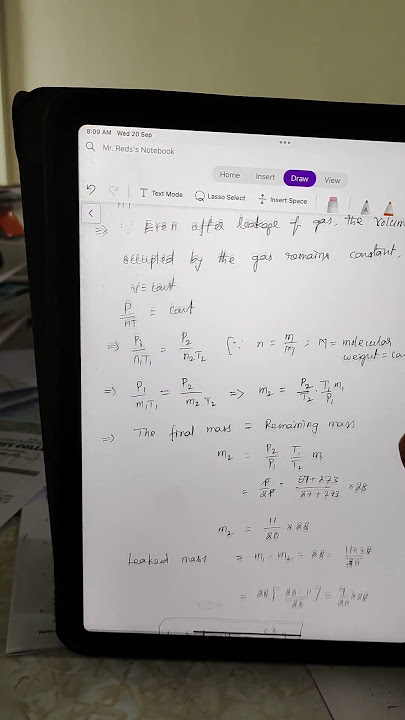 8:09 AM Wed 20 Sep
Mr. Reds's Notebook
Home Insert Draw View
Text Mode Lasso Select Insert Space
=> ∵ Even after leakage of gas, the volum
occupied by the gas remains constant.
V = const
P/nT = const
=> P1/n1T1 = P2/n2T2 [∵ n = m/M ; M = molecular
weight = con
=> P1/m1T1 = P2/m2T2 => m2 = P2/T2 · T1/P1 m1
=> The final mass = Remaining mass
m2 = P2/P1 · T1/T2 m1
= P/2P · 57+273/27+273 × 28
m2 = 11/20 × 28
Leaked mass = m1 - m2 = 28 - 11×28/20